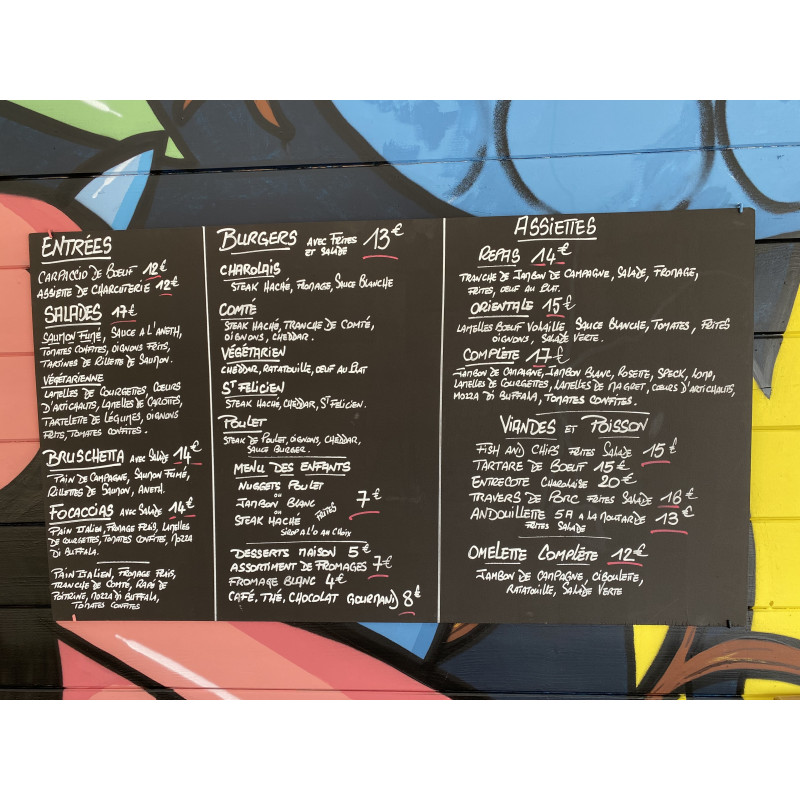 ENTRÉES
CARPACCIO DE BOEUF 12€
ASSIETTE DE CHARCUTERIE 12€
SALADES 17€
SAUMON FUMÉ, SAUCE A L'ANETH,
TOMATES CONFITES, OIGNONS FRITS,
TARTINES DE RILLETTE DE SAUMON.
VÉGÉTARIENNE
LAMELLES DE COURGETTES, CŒURS
D'ARTICHAUTS, LAMELLES DE CAROTTES,
TARTELETTE DE LÉGUMES, OIGNONS
FRITS, TOMATES CONFITES.
BRUSCHETTA AVEC SALADE 14€
PAIN DE CAMPAGNE, SAUMON FUMÉ,
RILLETTES DE SAUMON, ANETH.
FOCACCIAS AVEC SALADE 14€
PAIN ITALIEN, FROMAGE FRAIS, LAMELLES
DE COURGETTES, TOMATES CONFITES, MOZZA
DI BUFFALA.
PAIN ITALIEN, FROMAGE FRAIS,
TRANCHE DE COMTÉ, RAPÉ DE
POITRINE, MOZZA DI BUFFALA,
TOMATES CONFITES
BURGERS AVEC FRITES ET SALADE 13€
CHAROLAIS
STEAK HACHÉ, FROMAGE, SAUCE BLANCHE
COMTÉ
STEAK HACHÉ, TRANCHE DE COMTÉ,
OIGNONS, CHEDDAR.
VÉGÉTARIEN
CHEDDAR, RATATOUILLE, ŒUF AU PLAT
ST FELICIEN
STEAK HACHÉ, CHEDDAR, ST FELICIEN.
POULET
STEAK DE POULET, OIGNONS, CHEDDAR,
SAUCE BURGER.
MENU DES ENFANTS
NUGGETS POULET
OU
JAMBON BLANC 7€
OU
STEAK HACHÉ FRITES
SIROP A L'O AU CHOIX
DESSERTS MAISON 5€
ASSORTIMENT DE FROMAGES 7€
FROMAGE BLANC 4€
CAFÉ, THÉ, CHOCOLAT GOURMAND 8€
ASSIETTES
REPAS 14€
TRANCHE DE JAMBON DE CAMPAGNE, SALADE, FROMAGE,
FRITES, ŒUF AU PLAT.
ORIENTALE 15€
LAMELLES BOEUF VOLAILLE SAUCE BLANCHE, TOMATES, FRITES
OIGNONS, SALADE VERTE.
COMPLÈTE 17€
JAMBON DE CAMPAGNE, JAMBON BLANC, ROSETTE, SPECK, LOMO,
LAMELLES DE COURGETTES, LAMELLES DE MAGRET, CŒURS D'ARTICHAUTS,
MOZZA DI BUFFALA, TOMATES CONFITES.
VIANDES ET POISSON
FISH AND CHIPS FRITES SALADE 15€
TARTARE DE BOEUF 15€
ENTRECOTE CHAROLAISE 20€
TRAVERS DE PORC FRITES SALADE 16€
ANDOUILLETTE 5A A LA MOUTARDE 13€
FRITES SALADE
OMELETTE COMPLÈTE 12€
JAMBON DE CAMPAGNE, CIBOULETTE,
RATATOUILLE, SALADE VERTE